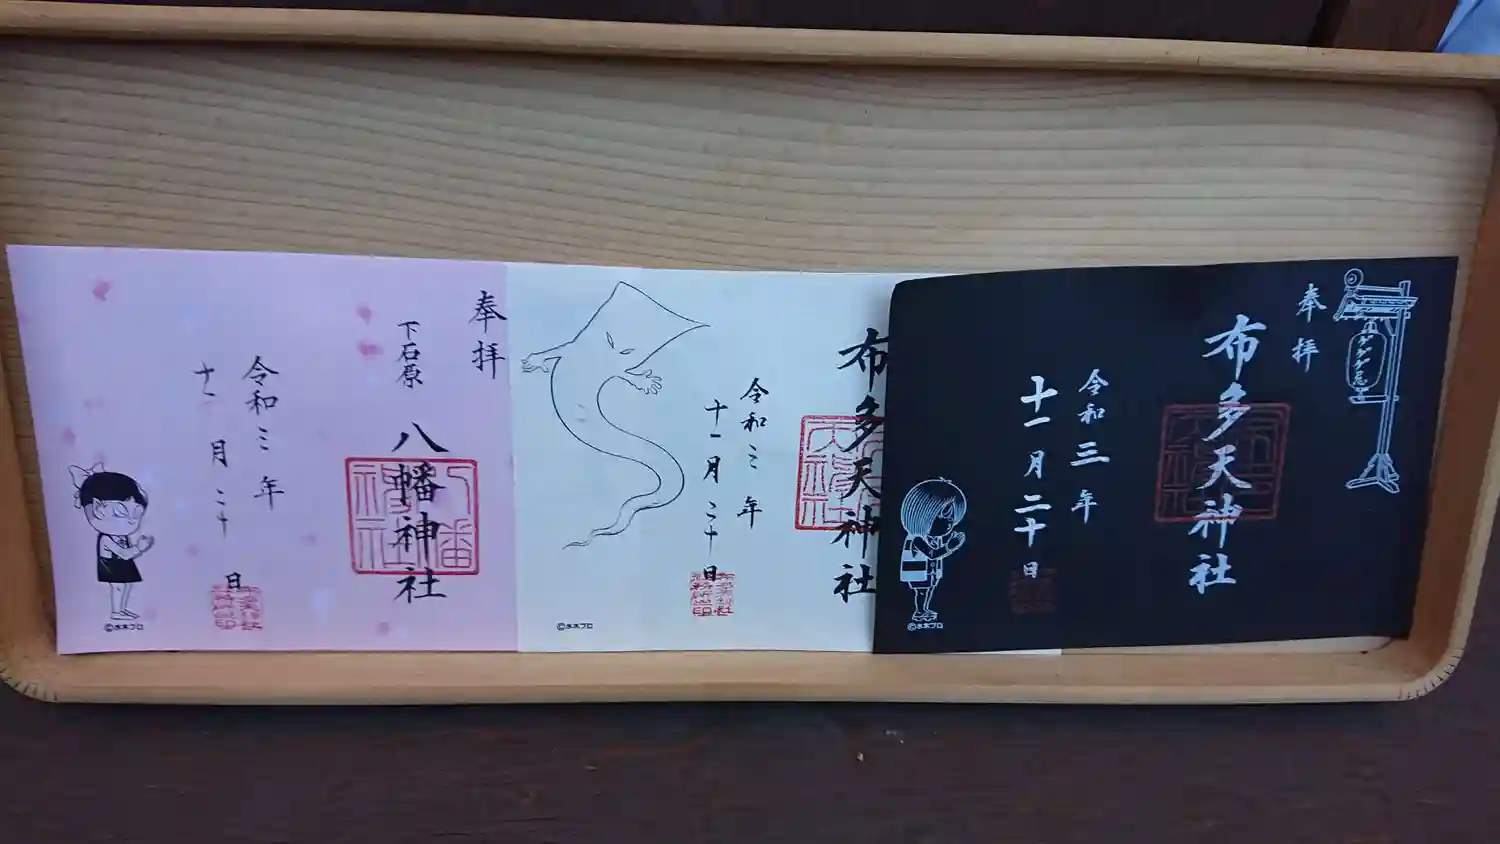 奉拝
下石原
八幡神社
令和三年
十一月二十日
©水木プロ
布多天神社
令和三年
十一月二十日
©水木プロ
奉拝
ゲゲゲ忌
布多天神社
令和三年
十一月二十日
©水木プロ